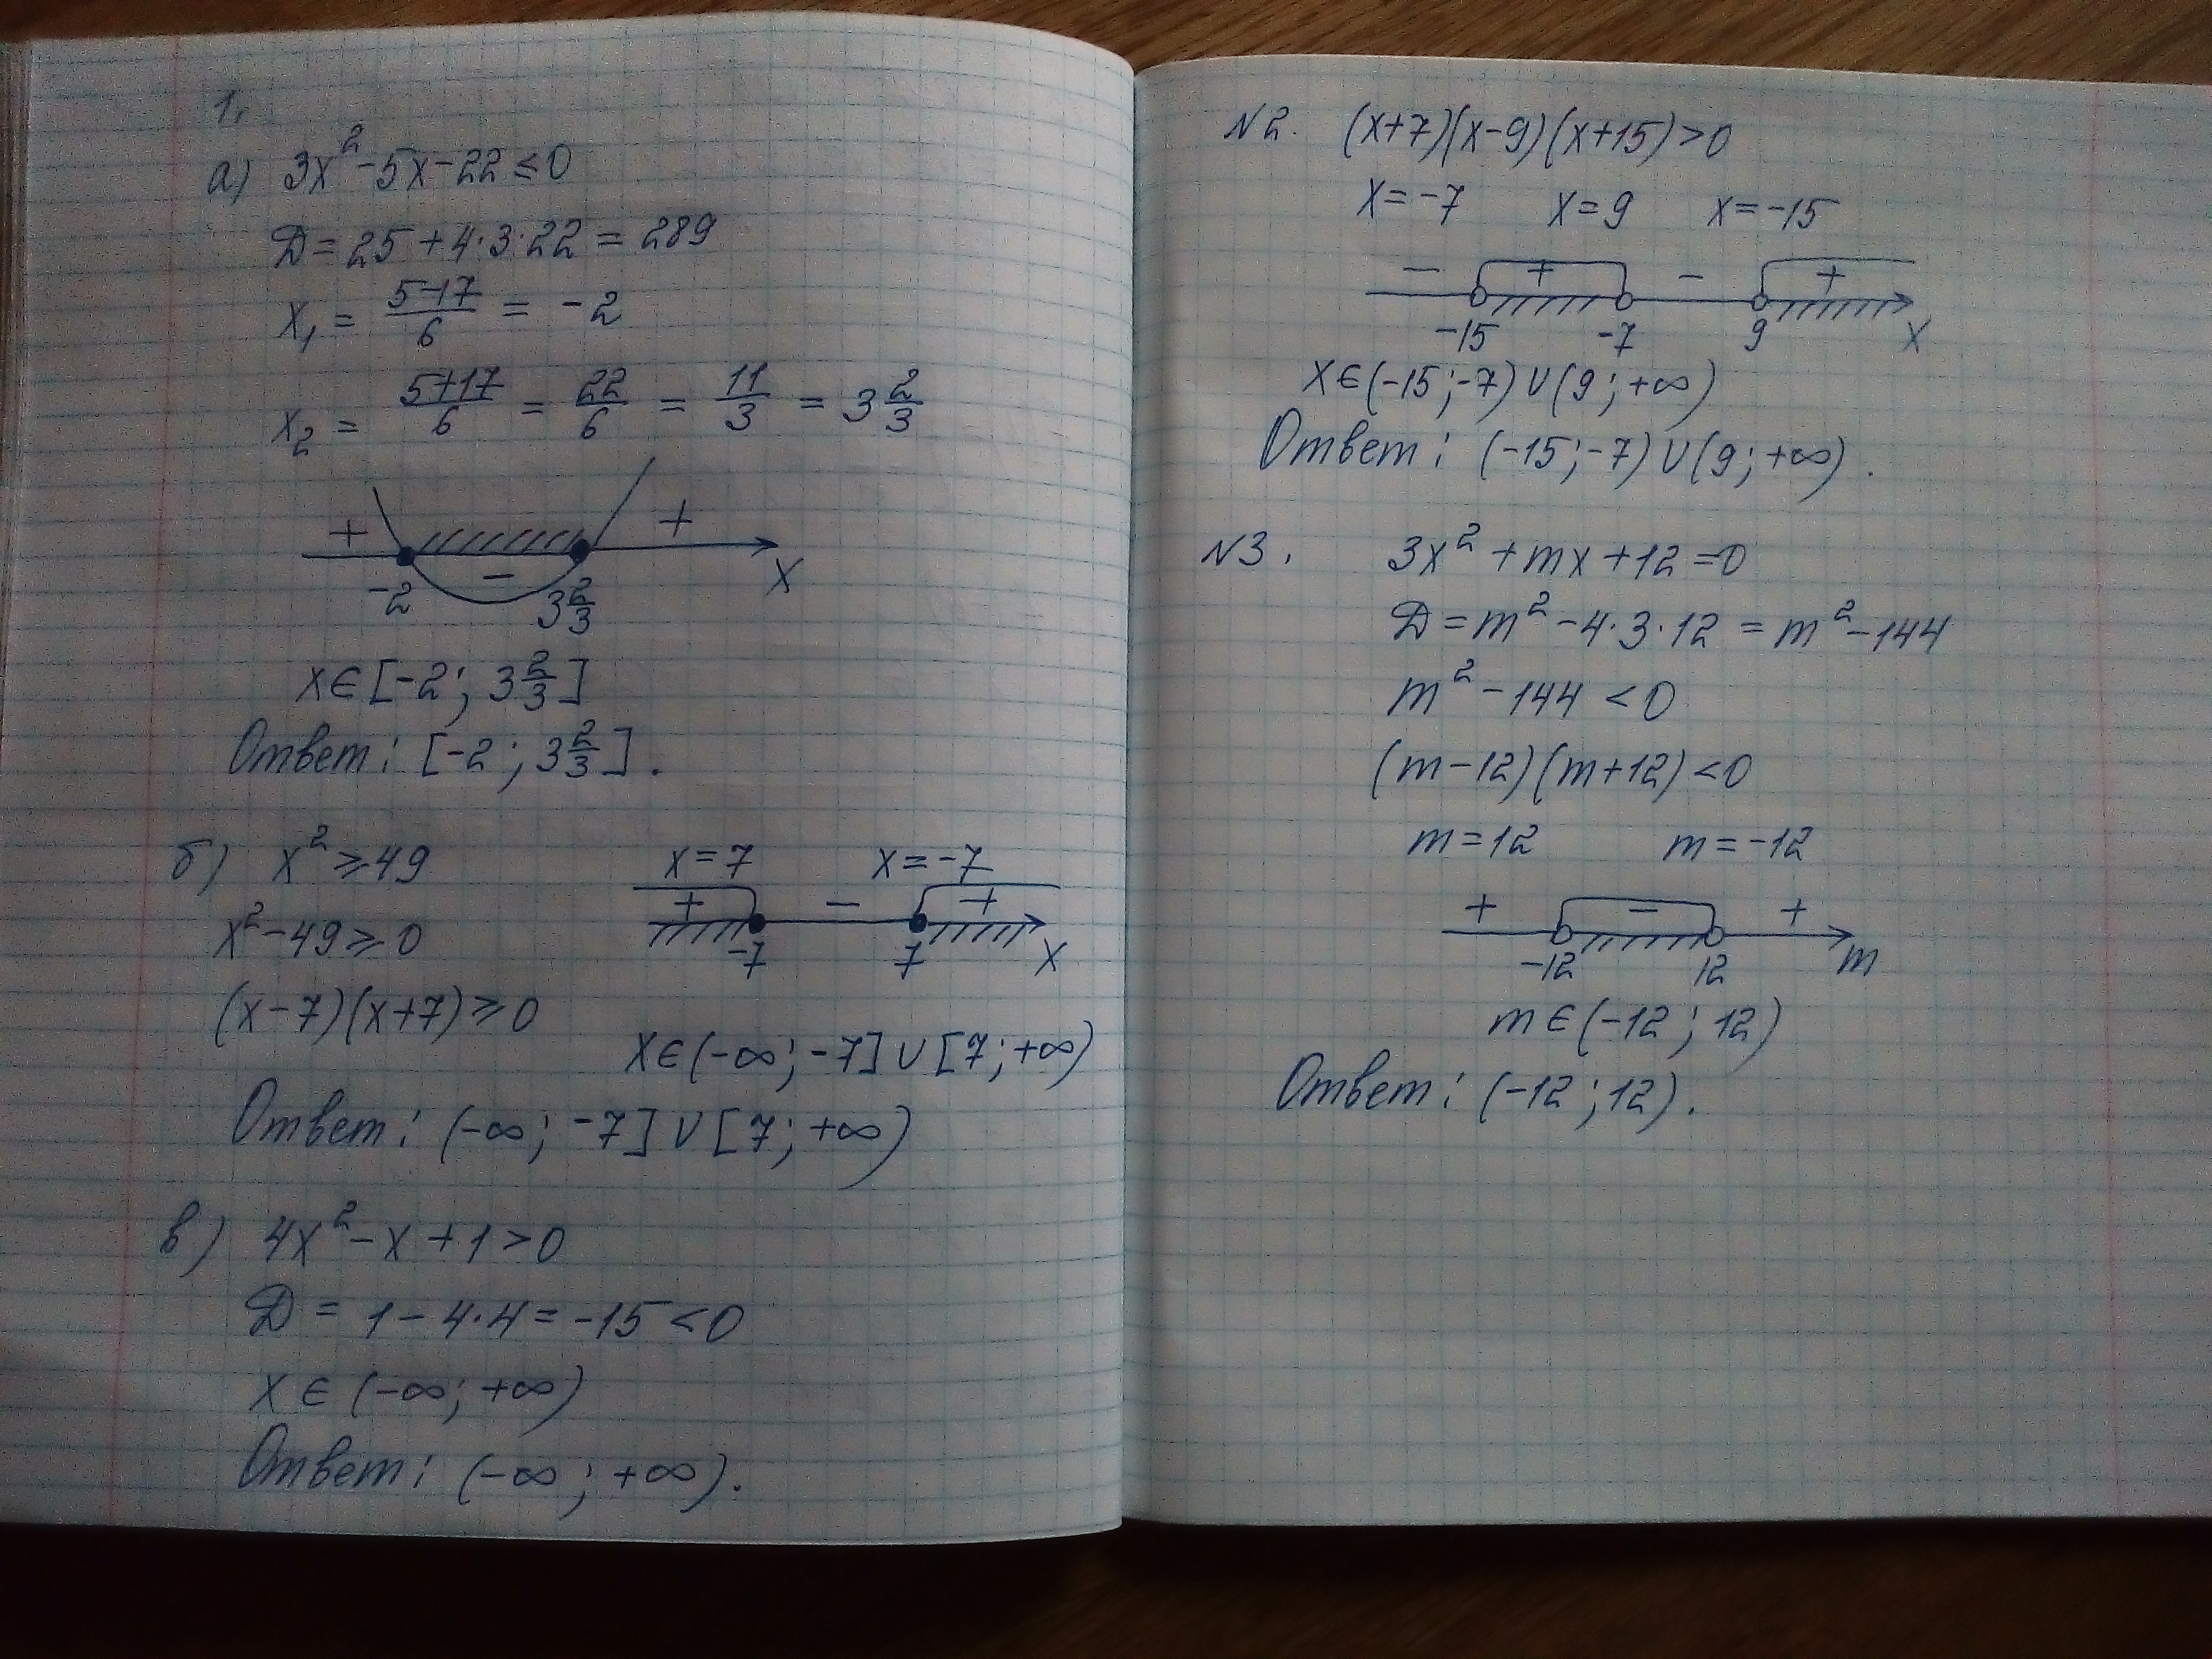 1.
а) 3x² - 5x - 22 ≤ 0
Д = 25 + 4·3·22 = 289
x₁ = (5-17)/6 = -2
x₂ = (5+17)/6 = 22/6 = 11/3 = 3 2/3
+ - +
-2 3 2/3 x
x ∈ [-2; 3 2/3]
Ответ: [-2; 3 2/3].
б) x² ≥ 49
x² - 49 ≥ 0
(x-7)(x+7) ≥ 0
x = 7 x = -7
+ - +
-7 7 x
x ∈ (-∞; -7] ∪ [7; +∞)
Ответ: (-∞; -7] ∪ [7; +∞)
в) 4x² - x + 1 > 0
Д = 1 - 4·4 = -15 < 0
x ∈ (-∞; +∞)
Ответ: (-∞; +∞).
N2. (x+7)(x-9)(x+15) > 0
x = -7 x = 9 x = -15
- + - +
-15 -7 9 x
x ∈ (-15; -7) ∪ (9; +∞)
Ответ: (-15; -7) ∪ (9; +∞).
N3. 3x² + mx + 12 = 0
Д = m² - 4·3·12 = m² - 144
m² - 144 < 0
(m-12)(m+12) < 0
m = 12 m = -12
+ - +
-12 12 m
m ∈ (-12; 12)
Ответ: (-12; 12).